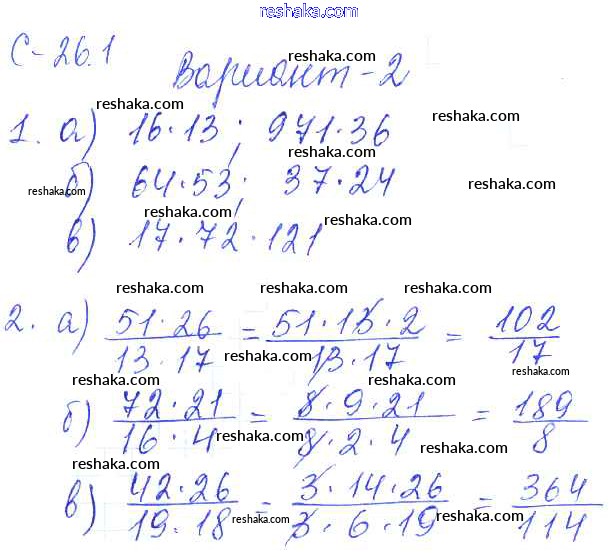 www.reshak.ru
С-26.1
reshaka.com
Вариант-2
reshaka.com
reshaka.com
1. а) 16·13; 971·36
reshaka.com
reshaka.com
б) 64·53; 37·24
reshaka.com
reshaka.com
reshaka.com
в) 17·72·121
reshaka.com
reshaka.com
reshaka.com
2. а) 51·26/13·17 = 51·13·2/13·17 = 102/17
reshaka.com
reshaka.com
reshaka.com
reshaka.com
б) 72·21/16·4 = 8·9·21/8·2·4 = 189/8
reshaka.com
reshaka.com
reshaka.com
reshaka.com
в) 42·26/19·18 = 3·14·26/3·6·19 = 364/114
reshaka.com
reshaka.com